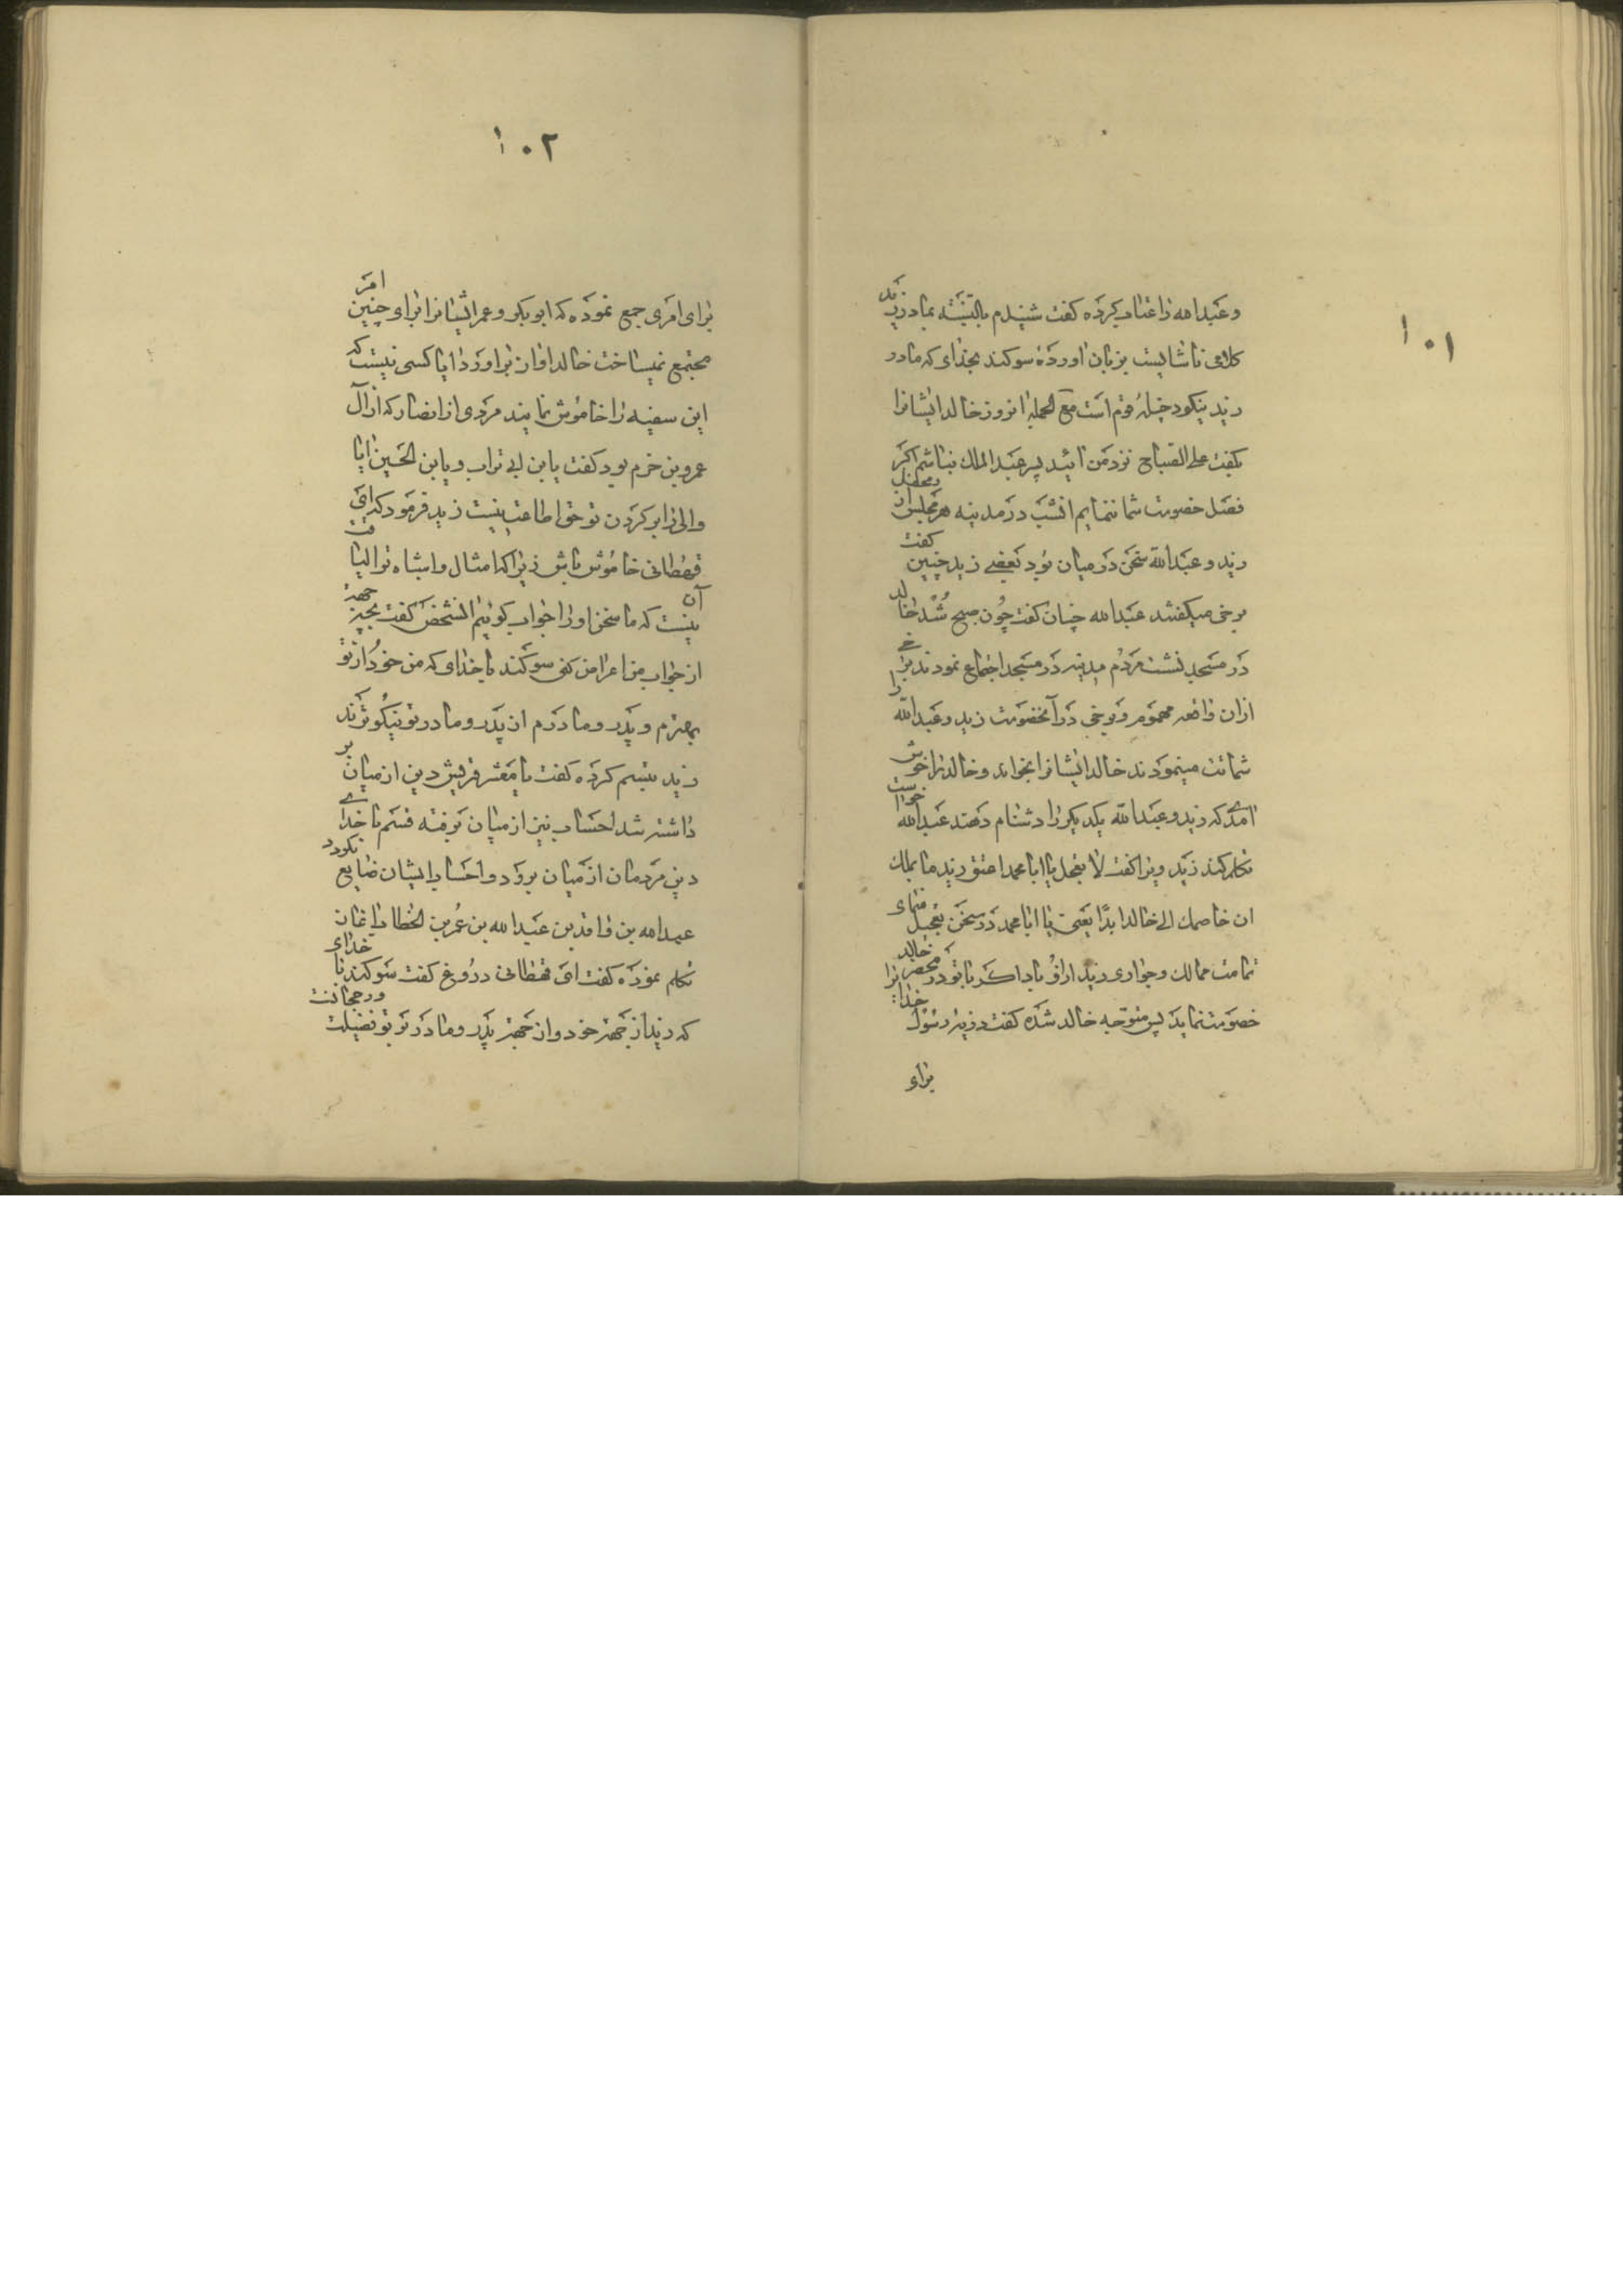 ۱۰۱
وعبدالله را عتاب کرده کفت شنیدم بالنسبه بمادر زید
کلامی ناشایست بزبان اورده سوکند بخدای که مادر
زید نیکو دخیله قوم است مع الجمله انروز خالد ایشانرا
بکفت علی الصباح نزد من ائید پسر عبدالملک نباشم اکر
فصل خصومت شما ننمایم انشب در مدینه هر مجلس و محفل از
زید و عبدالله سخن در میان بود بعضی زید چنین کفت
برخی میکفتند عبدالله چنان کفت چون صبح شد خالد
در مسجد نشست مردم مدینه در مسجد اجتماع نمودند برخی
ازان واقعه مهموم و برخی در آنخصومت زید و عبدالله را
شماتت مینمودند خالد ایشانرا بخواند و خالد را خوش
امدی که زید و عبدالله یکدیکر را دشنام دهند عبدالله خواست
تکلم کند زید ویرا کفت لا تعجل یا ابا محمد اعتق زید ما یملک
ان خاصمک الی خالد ابدا یعنی یا ابا محمد در سخن تعجیل منمای
تمامت ممالیک و جواری زید ازاد باد اکر با تو در محضر خالد ترا
خصومت نماید پس متوجه خالد شده کفت ذریه رسول خدا
برای
۱۰۲
برای امری جمع نموده که ابوبکر و عمر ایشانرا برای چنین امر
مجتمع نمیساخت خالد اواز براورد ایا کسی نیست که
این سفیه را خاموش نمایند مردی از انصار که از آل
عمرو بن حزم بود کفت یا بن ابی تراب و یا بن الحسین ایا
والی را بر کردن تو حق اطاعت نیست زید فرمود که ای
قحطانی خاموش باش زیرا که امثال و اشباه ترا لیاقت
آن نیست که ما سخن او را جواب کوئیم انشخص کفت بچه جهة
از جواب من اعراض کنی سوکند با خدای که من خود از تو
بهترم و پدر و مادرم از پدر و مادر تو نیکوترند
زید تبسم کرده کفت یا معشر قریش دین از میان بر
داشته شد احساب نیز از میان برفته قسم با خدای
دین مردمان از میان برود و احساب ایشان ضایع نکردد
عبدالله بن واقد بن عبدالله بن عمر بن الخطاب اغاز
تکلم نموده کفت ای قحطانی دروغ کفت سوکند با خدای
که زید از جهة خود و از جهة پدر و مادر بر تو فضیلت و رجحانت